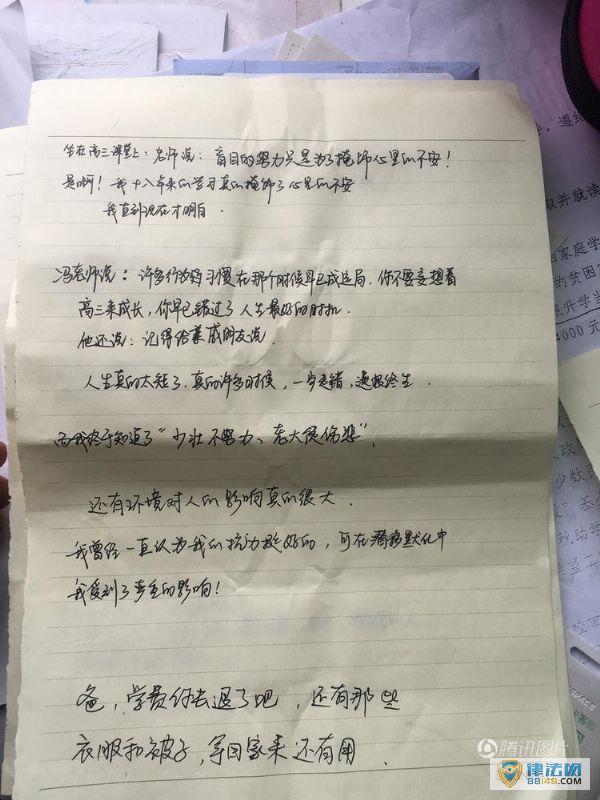 坐在高三课堂上，老师说：盲目的努力只是为了掩饰心里的不安！
是啊！我十八年来的学习真的掩饰了心里的不安
我直到现在才明白．
冯老师说：许多行为好习惯在那个时候早已成造局．你不要妄想着
高三来成长，你早已错过了人生最好的时机．
他还说：记得给亲戚朋友说．
人生真的太短了．真的许多时候，一步走错，遗恨终生．
而我终于知道了“少壮不努力、老大徒伤悲”．
还有环境对人的影响真的很大．
我曾经一直认为我的抗力挺好的，可在潜移默化中
我受到了严重的影响！
爸，学费付去退了吧，还有那些
衣服和被子，拿回家来还有用．
遵纪
取并就读
家庭学
的贫困
升学当
000元
少数
腾讯图片
律法网
88148.com